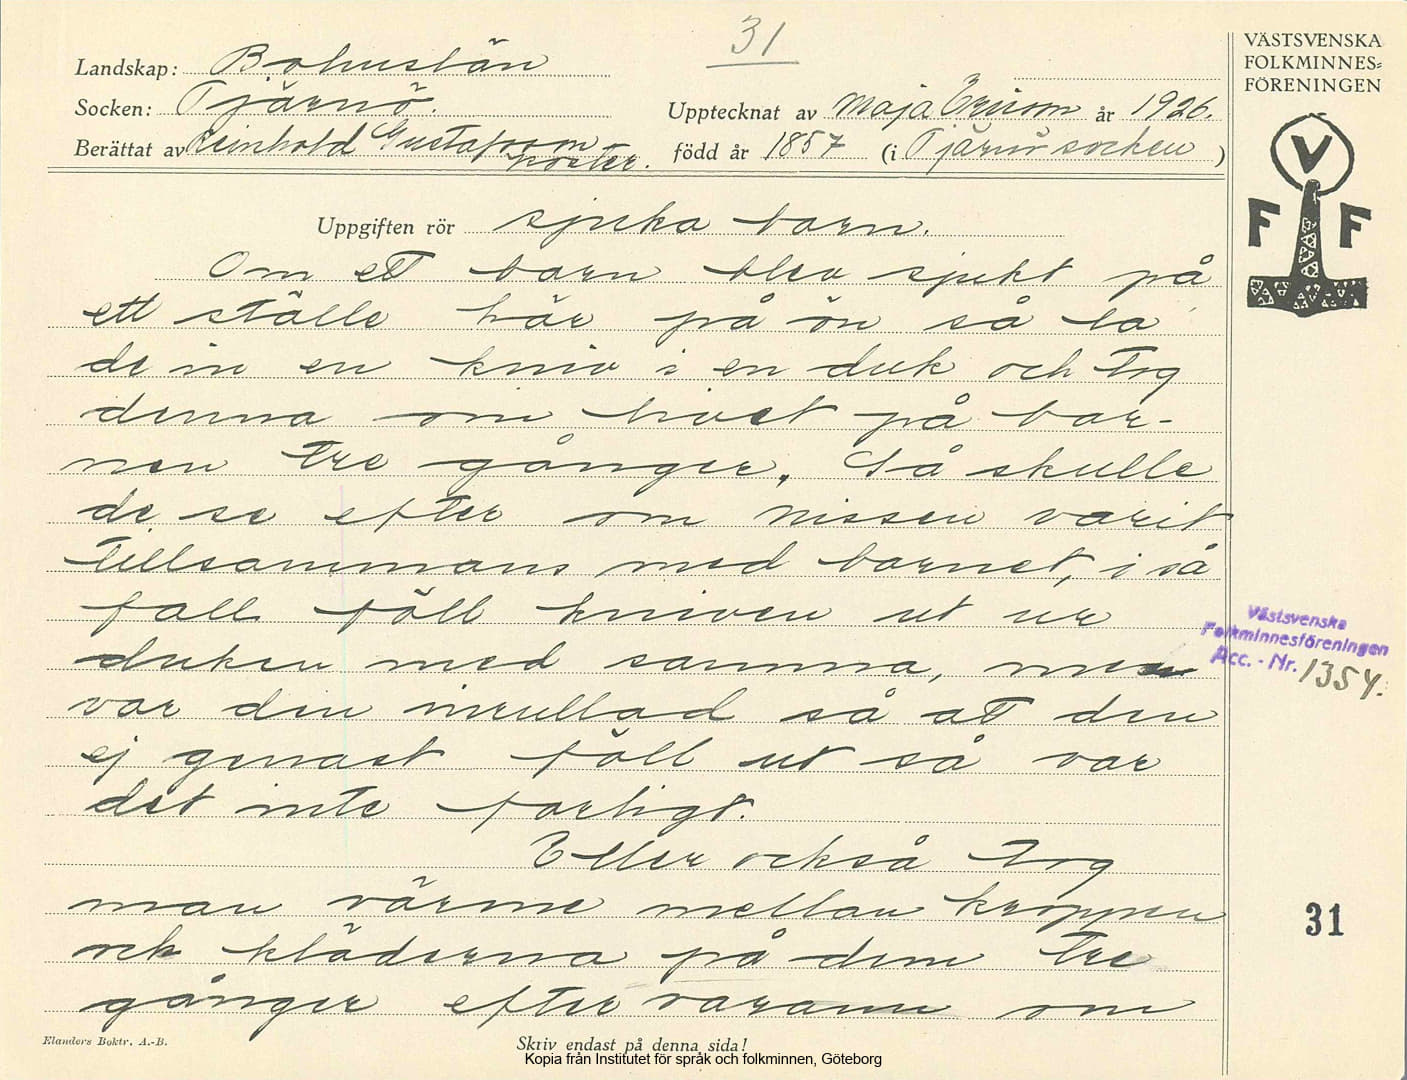 31
Landskap: Bohuslän
Socken: Tjärnö.
Upptecknat av Maja Ericson år 1926.
Berättat av Reinhold Gustafsson
Koster. född år 1857 (i Tjärnö socken)
VÄSTSVENSKA
FOLKMINNES=
FÖRENINGEN
V
F F
Uppgiften rör sjuka barn.
Om ett barn blev sjukt på
ett ställe här på ön så la
de in en kniv i en duk och tog
denna om livet på bar-
nen tre gånger. Så skulle
de se efter om nissen varit
tillsammans med barnet, i så
fall föll kniven ut ur
duken med samma, men
var den inrullad så att den
ej genast föll ut så var
det inte farligt.
Eller också tog
man värme mellan kroppen
och kläderna på dem tre
gånger efter varann om
Västsvenska
Folkminnesföreningen
Acc. - Nr. 1354.
31
Elanders Boktr. A.-B.
Skriv endast på denna sida!
Kopia från Institutet för språk och folkminnen, Göteborg